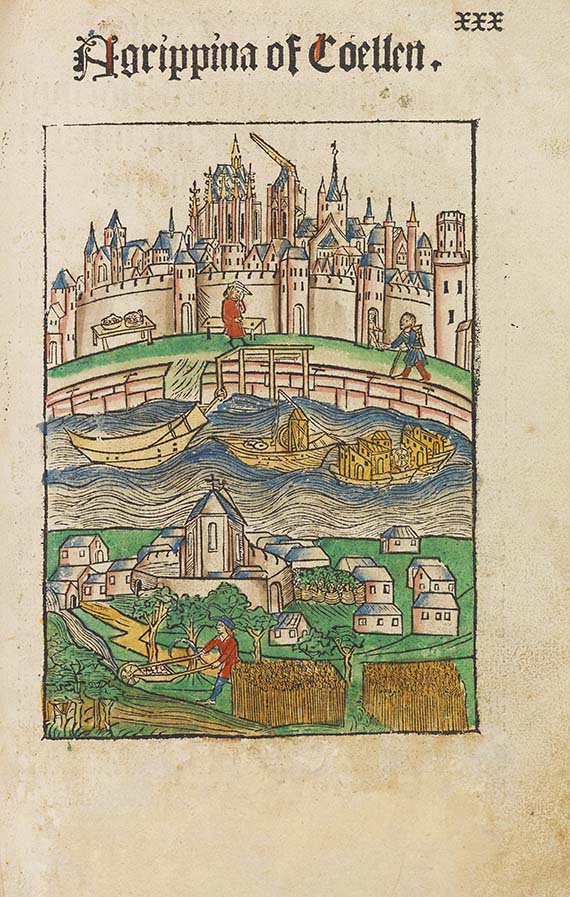 xxx
Agrippina of Coellen.